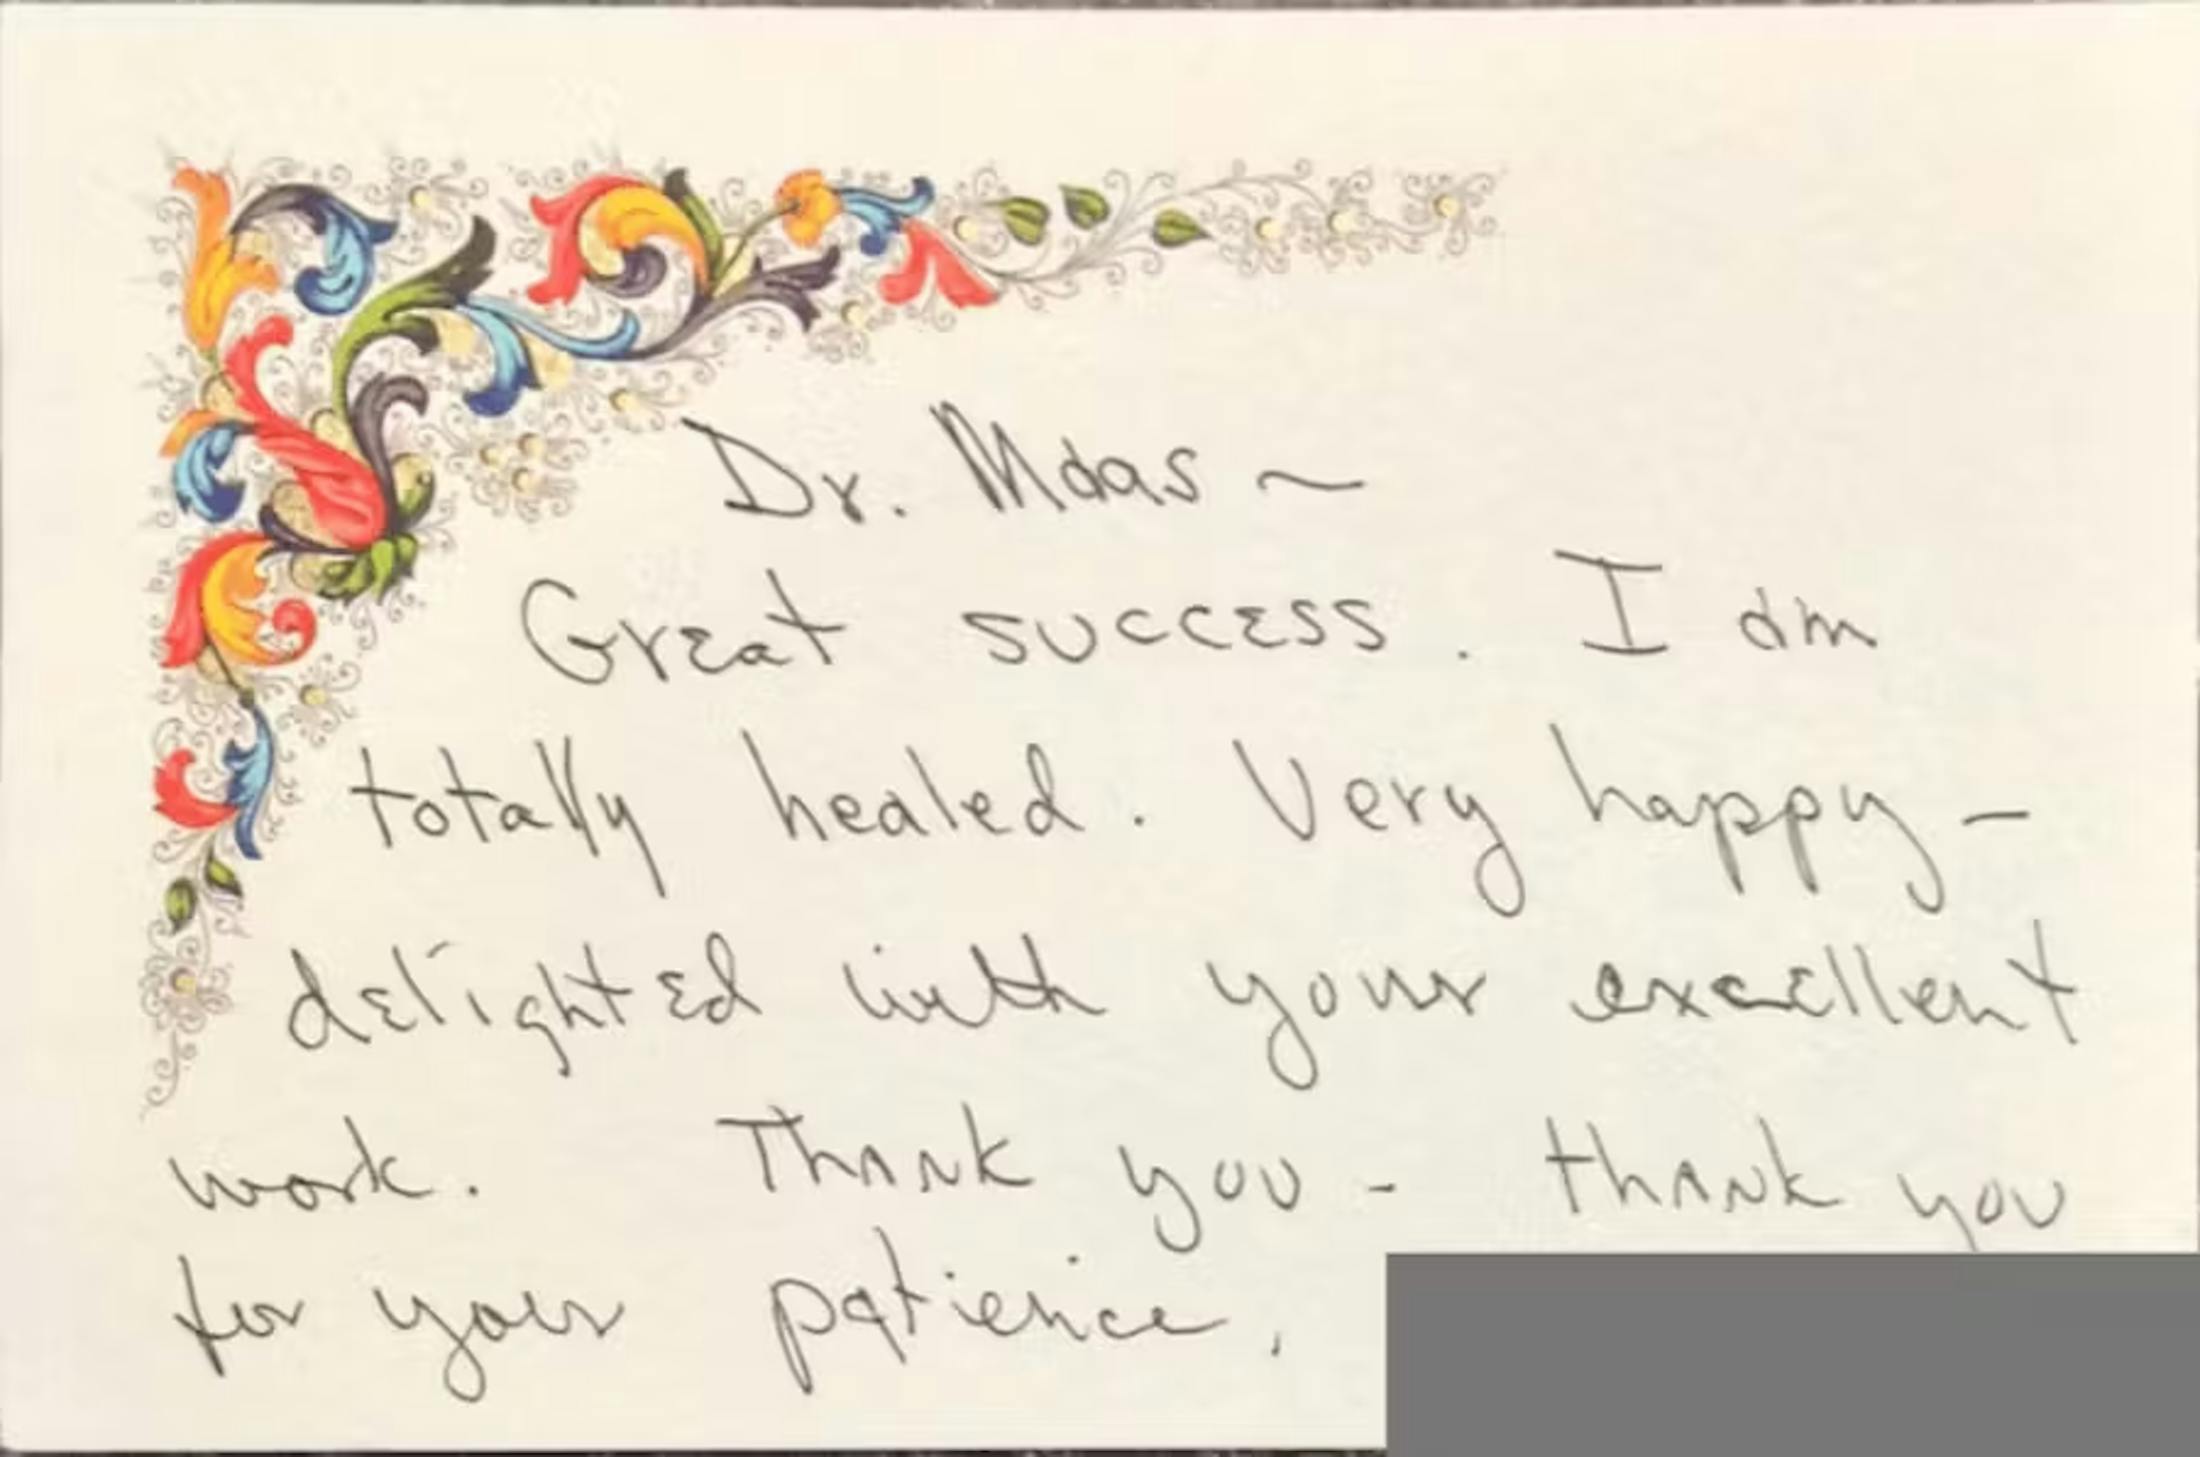 Dr. Maas ~
Great success. I am
totally healed. Very happy —
delighted with your excellent
work. Thank you - thank you
for your patience,